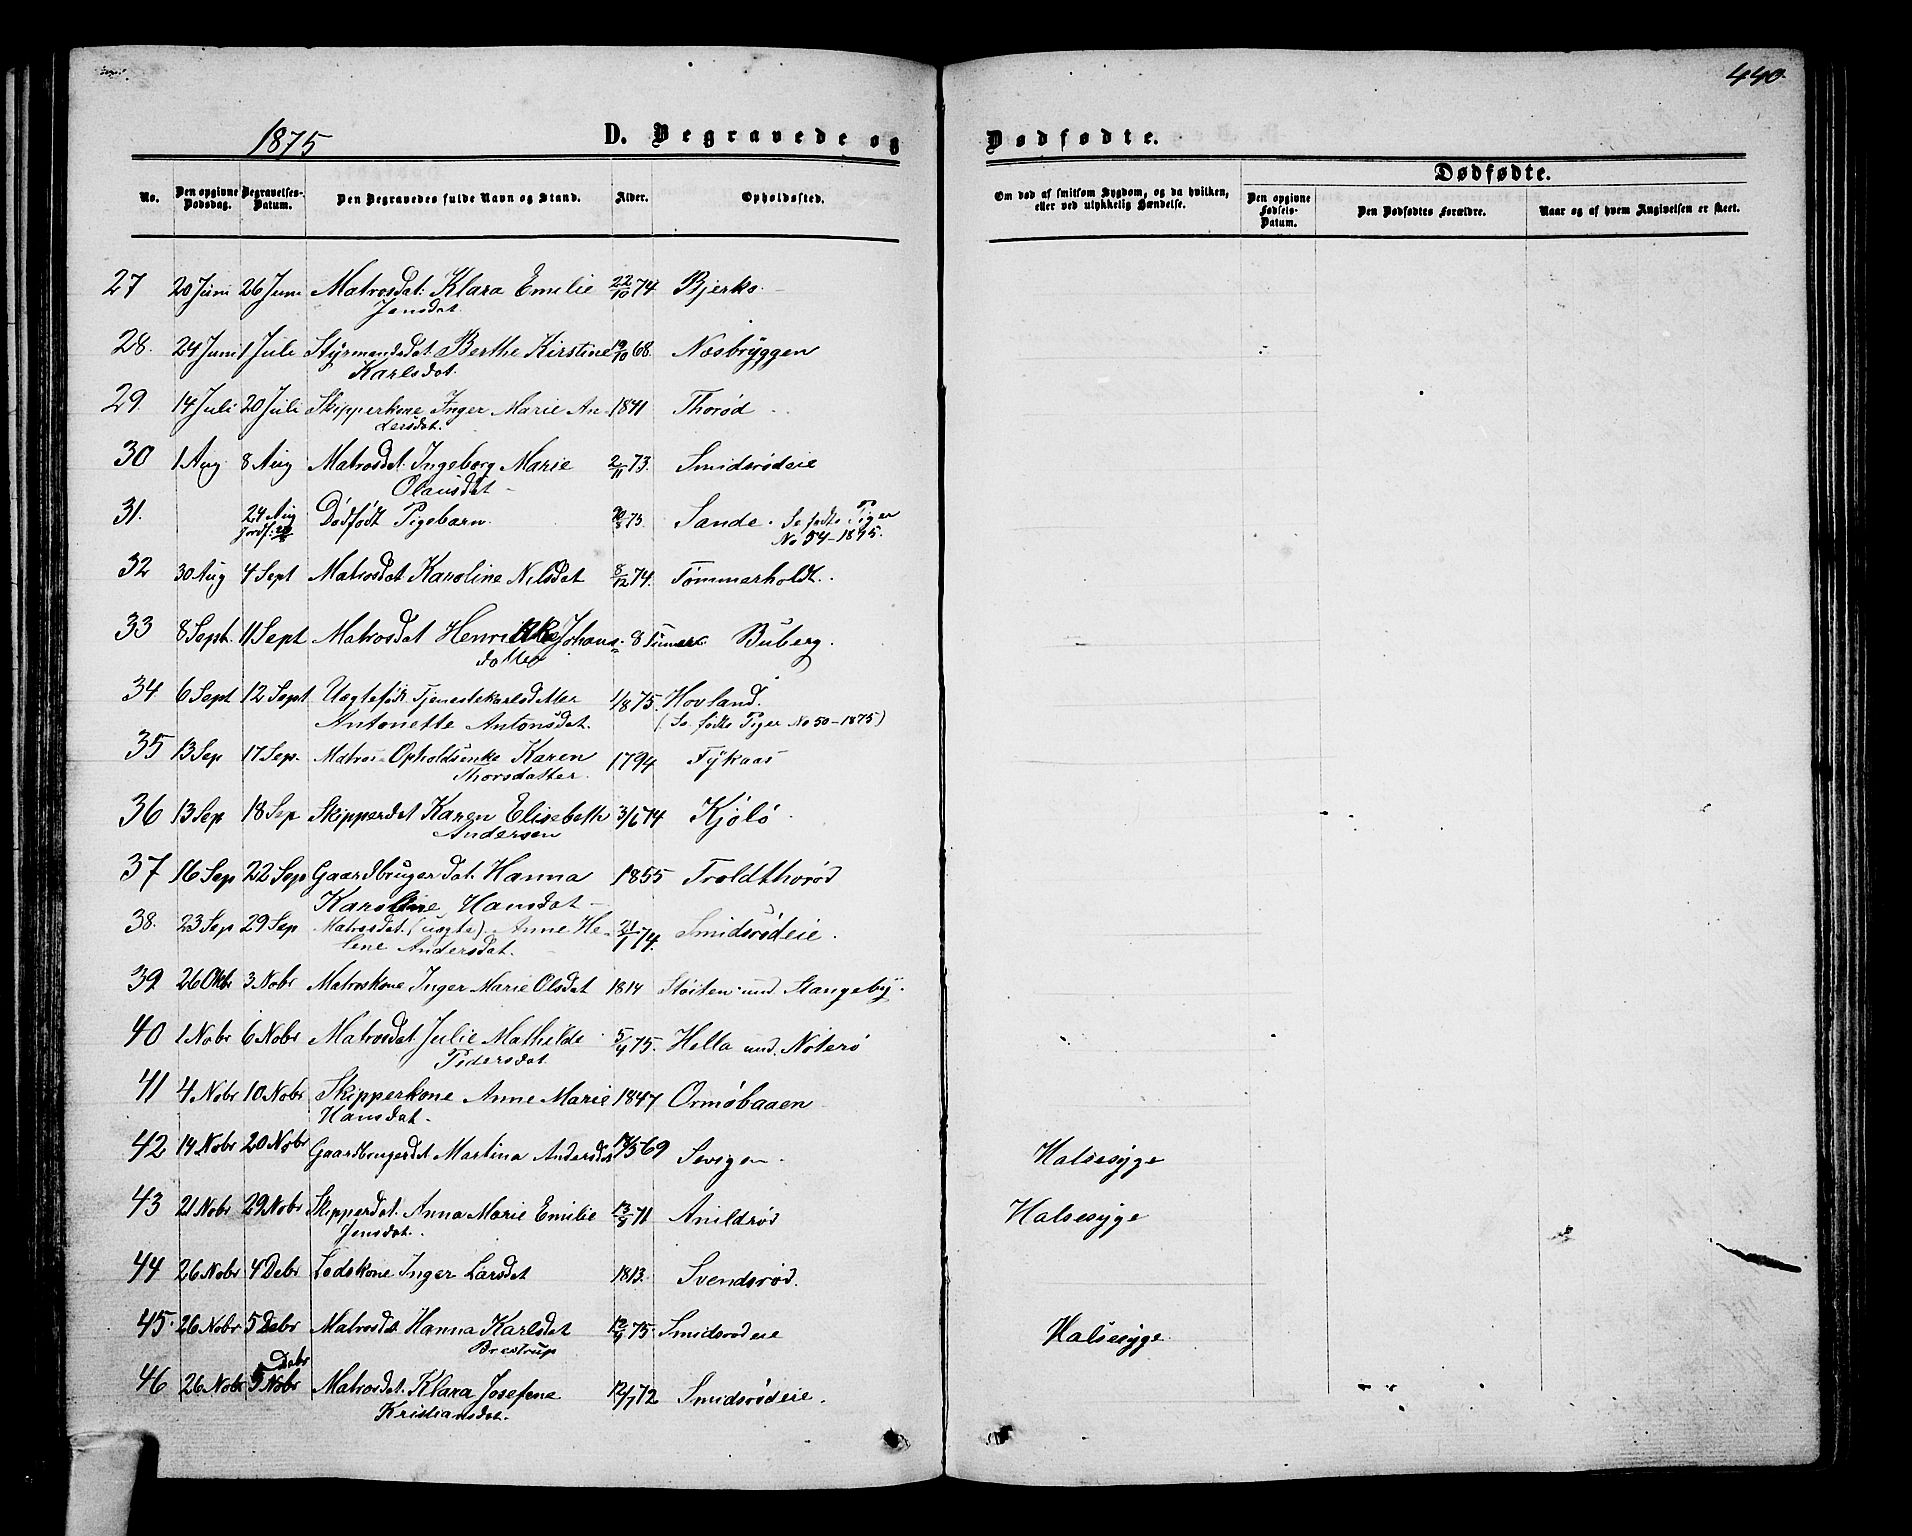 440.
1875
D. Begravede og Dødfødte.
No. Den opgivne Dødsdag. Begravelses-Datum. Den Begravedes fulde Navn og Stand. Alder. Opholdssted. Om død af smitsom Sygdom, og da hvilken, eller ved ulykkelig Hændelse. Dødfødte.
Den opgivne Fødsels-Datum. Den Dødfødtes Forældre. Naar og af hvem Angivelsen er skeet.
27 20 Juni 26 Juni Matrosdat: Klara Emilie 22/10 74 Bjerkø
Jensdat.
28. 24 Juni 1 Juli Styrmandsdat Berthe Kirstine 19/10 68. Næsbryggen
Karlsdat.
29. 14 Juli 20 Juli Skipperkone Inger Marie An- 1841 Thorød
dersdat.
30 1 Aug 8 Aug Matrosdat. Ingeborg Marie 2/11 73. Smidsrødeie
Olausdat
31. 24 Aug Dødfødt Pigebarn. 75. Sande. Se fødte Piger
Jordf: No 54-1875.
32 30 Aug 4 Sept Matrosdat Karoline Nilsdat 8/12 74. Tømmerholdt.
33 8 Sept. 11 Sept Matrosdat Henrikke Johans- 8 Timer Buberg.
datter
34 6 Sept 12 Sept Uægtefødt Tjenestekarlsdatter 1/8 75. Hovland.
Antonette Antonsdat. (Se fødte Piger No 50-1875)
35 13 Sep 17 Sep. Matros- Opholdsenke Karen 1794 Fykaas
Thorsdatter.
36 13 Sep 18 Sep Skipperdat Karen Elisabeth 3/6 74 KjøLø
Andersen
37 16 Sep 22 Sep Gaardbrugerdat. Hanna 1855 Troldthorød
Karoline Hansdat
38. 23 Sep 29 Sep Matrosdat. (uægte) Anne He- 21/1 74. Smidsrødeie.
lene Andersdat.
39 26 Oktbr 3 Nobr Matroskone Inger Marie Olsdat 1814 Støiten und Stangeby.
40 1 Nobr 6 Nobr Matrosdat. Julie Mathilde 5/4 75. Hella und. Nøterø
Pedersdat.
41 4 Nobr 10 Nobr Skipperkone Anne Marie 1847 Ormøbaaen
Hansdat.
42 14 Nobr 20 Nobr Gaardbrugerdat Martina Andersdat 69 Sevigen. Halsesyge
43 21 Nobr 29 Nobr Skipperdat. Anna Marie Emilie 71 Anildrød Halsesyge
Jensdat.
44 26 Nobr 4 Debr Lodskone Inger Larsdat 1813. Svendsrød.
45. 26 Nobr 5 Debr Matrosdat Hanna Karlsdat 75. Smidsrødeie Halsesyge
Brestrup
Debr
46 26 Nobr 5 Nobr Matrosdat. Klara Josefine 12/7 72 Smidsrødeie.
Kristiansdat.